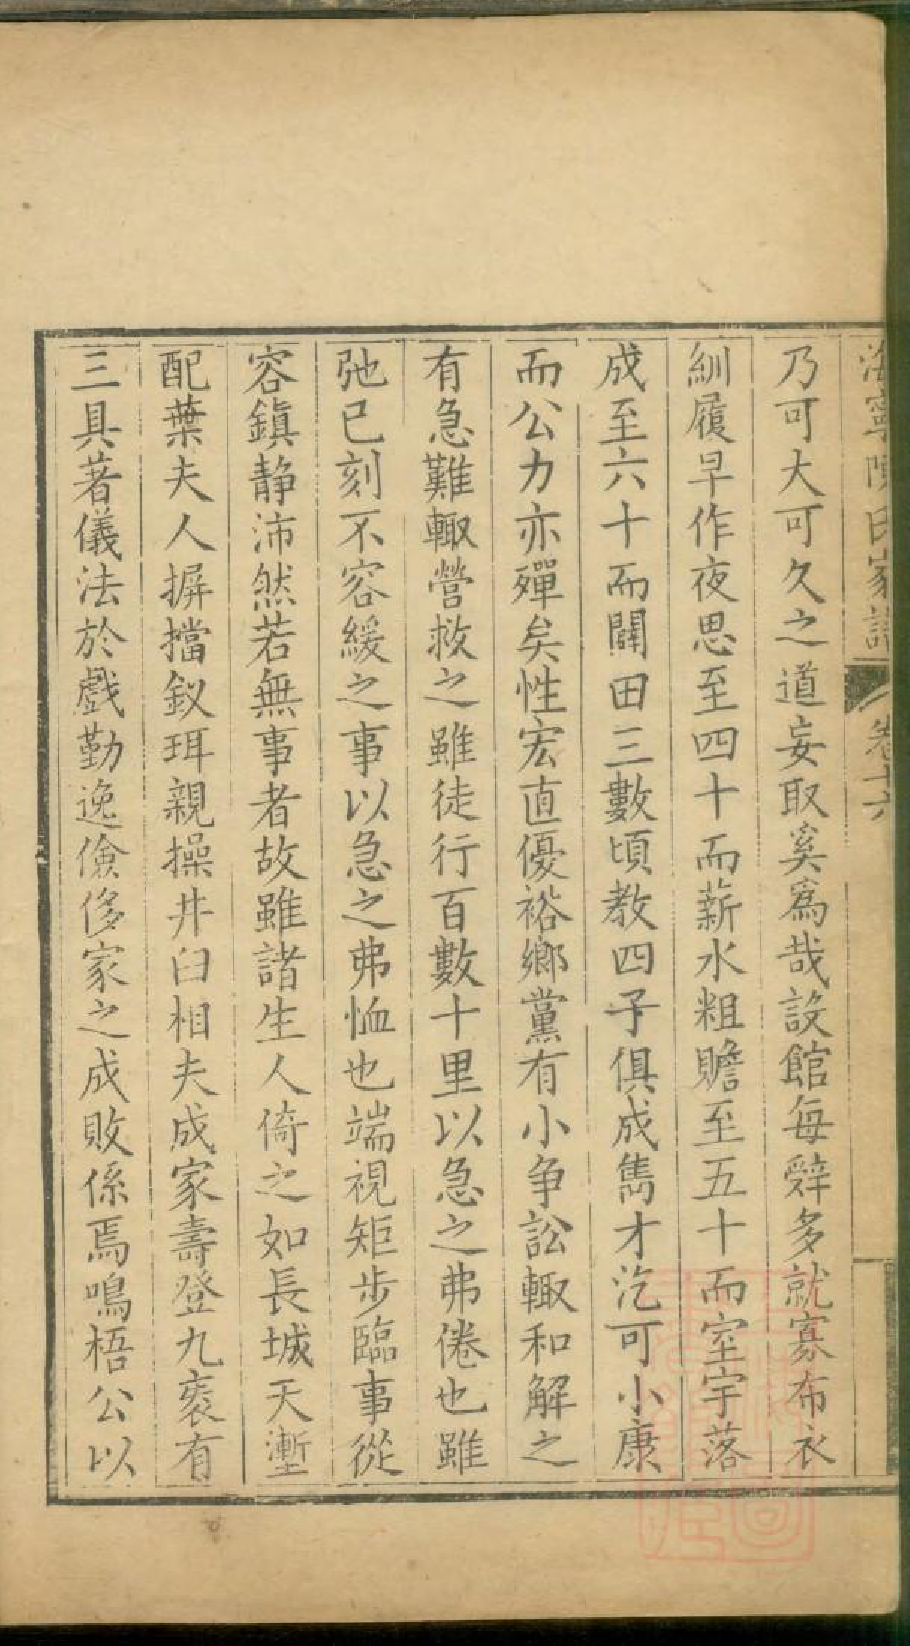 海寧陳氏家譜 卷十六
乃可大可久之道妄取奚為哉設館每辤多就寡布衣
紃履早作夜思至四十而薪水粗贍至五十而室宇落
成至六十而闢田三數頃教四子俱成雋才汔可小康
而公力亦殫矣性宏直優裕鄉黨有小争訟輙和解之
有急難輙營救之雖徒行百數十里以急之弗倦也雖
弛已刻不容緩之事以急之弗恤也端視矩步臨事從
容鎮静沛然若無事者故雖諸生人倚之如長城天塹
配葉夫人摒擋釵珥親操井臼相夫成家壽登九袠有
三具著儀法於戲勤逸儉侈家之成敗係焉鳴梧公以